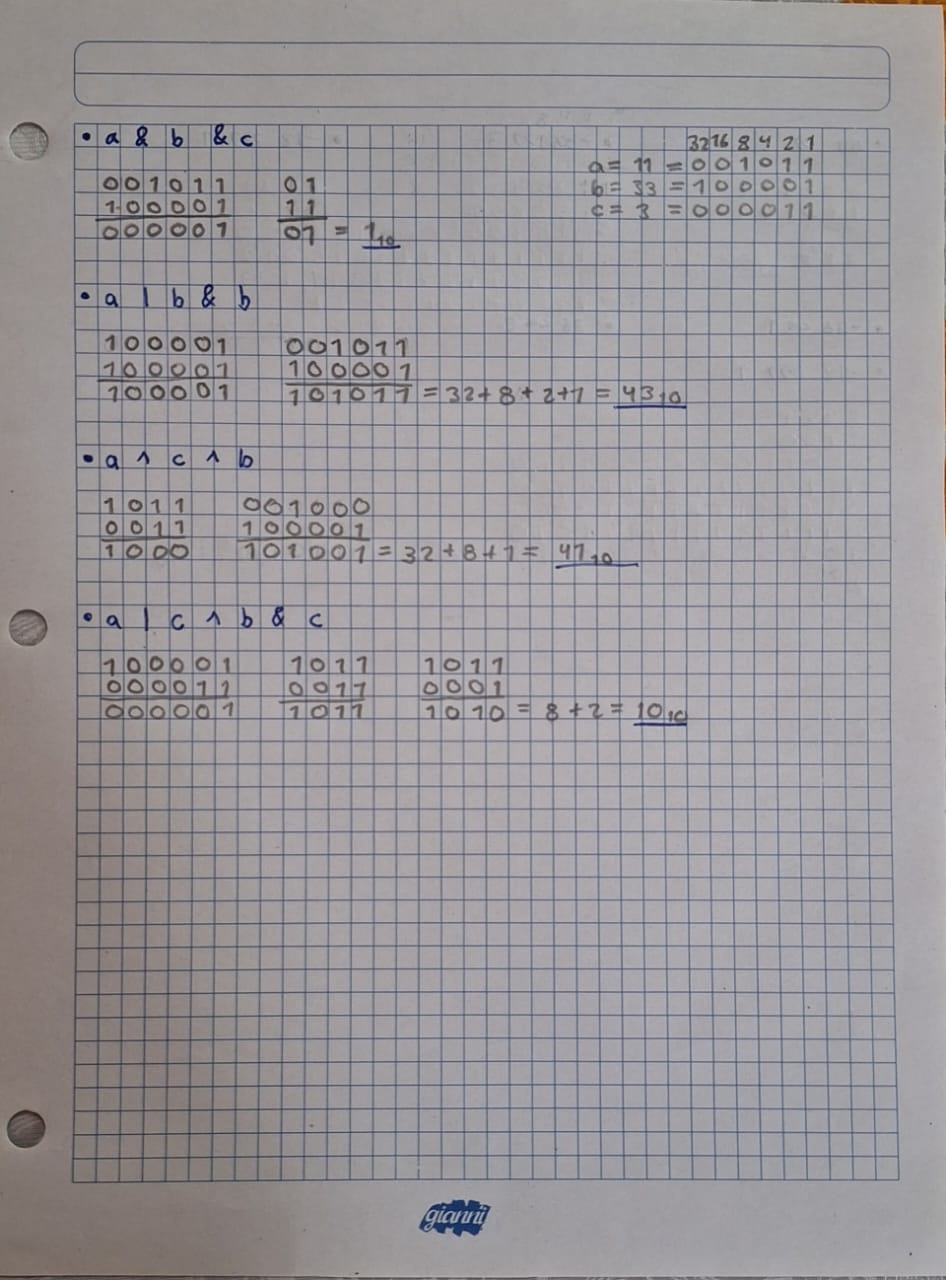 • a & b & c
32 16 8 4 2 1
a = 11 = 0 0 1 0 1 1
b = 33 = 1 0 0 0 0 1
c = 3 = 0 0 0 0 1 1
0 0 1 0 1 1   0 1
1 0 0 0 0 1   1 1
0 0 0 0 0 1   0 1 = 1₁₀
• a | b & b
1 0 0 0 0 1   0 0 1 0 1 1
1 0 0 0 0 1   1 0 0 0 0 1
1 0 0 0 0 1   1 0 1 0 1 1 = 32 + 8 + 2 + 1 = 43₁₀
• a ^ c ^ b
1 0 1 1   0 0 1 0 0 0
0 0 1 1   1 0 0 0 0 1
1 0 0 0   1 0 1 0 0 1 = 32 + 8 + 1 = 41₁₀
• a | c ^ b & c
1 0 0 0 0 1   1 0 1 1   1 0 1 1
0 0 0 0 1 1   0 0 1 1   0 0 0 1
0 0 0 0 0 1   1 0 1 1   1 0 1 0 = 8 + 2 = 10₁₀
gianni